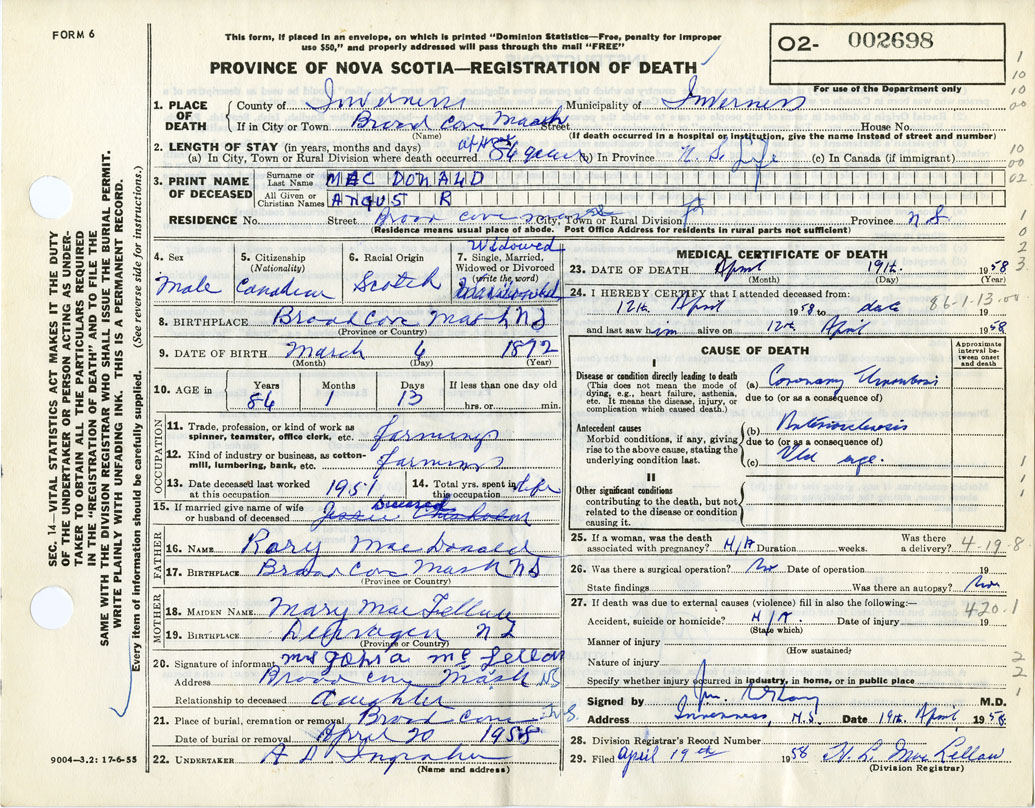 FORM 6
This form, if placed in an envelope, on which is printed "Dominion Statistics—Free, penalty for improper
use $50," and properly addressed will pass through the mail "FREE"
O2- 002698
For use of the Department only
PROVINCE OF NOVA SCOTIA—REGISTRATION OF DEATH
1. PLACE OF DEATH County of Inverness Municipality of Inverness
If in City or Town Broad Cove Marsh Street House No.
(Name) (If death occurred in a hospital or institution, give the name instead of street and number)
2. LENGTH OF STAY (in years, months and days)
(a) In City, Town or Rural Division where death occurred approx 86 years (b) In Province N. S. Life (c) In Canada (if immigrant)
3. PRINT NAME OF DECEASED Surname or Last Name MAC DONALD
All Given or Christian Names ANGUS R
RESIDENCE No. Street Broad Cove City, Town or Rural Division Province N S
(Residence means usual place of abode. Post Office Address for residents in rural parts not sufficient)
4. Sex Male
5. Citizenship (Nationality) Canadian
6. Racial Origin Scotch
7. Single, Married, Widowed or Divorced (write the word) Widowed
8. BIRTHPLACE Broad Cove Marsh NS
(Province or Country)
9. DATE OF BIRTH March 6 1872
(Month) (Day) (Year)
10. AGE in Years 86 Months 1 Days 13 If less than one day old
hrs. or min.
OCCUPATION
11. Trade, profession, or kind of work as spinner, teamster, office clerk, etc. farming
12. Kind of industry or business, as cotton-mill, lumbering, bank, etc. farming
13. Date deceased last worked at this occupation 1951 14. Total yrs. spent in this occupation Life
15. If married give name of wife or husband of deceased Deceased Jessie Chisholm
FATHER
16. NAME Rory MacDonald
17. BIRTHPLACE Broad Cove Marsh NS
(Province or Country)
MOTHER
18. MAIDEN NAME Mary MacLellan
19. BIRTHPLACE N S
(Province or Country)
20. Signature of informant Mrs John A McLellan
Address Broad Cove Marsh NS
Relationship to deceased daughter
21. Place of burial, cremation or removal Broad Cove N.S.
Date of burial or removal April 20 1958
22. UNDERTAKER A D
(Name and address)
MEDICAL CERTIFICATE OF DEATH
23. DATE OF DEATH April 19th. 1958
(Month) (Day) (Year)
24. I HEREBY CERTIFY that I attended deceased from:
12th April 1958 to date 19
86-1-13-00
and last saw him alive on 12th April 1958
CAUSE OF DEATH
Approximate interval between onset and death
I
Disease or condition directly leading to death
(This does not mean the mode of dying, e.g., heart failure, asthma, etc. It means the disease, injury, or complication which caused death.)
(a) Coronary Thrombosis
due to (or as a consequence of)
Antecedent causes
Morbid conditions, if any, giving rise to the above cause, stating the underlying condition last.
(b) Arteriosclerosis
due to (or as a consequence of)
(c) Old age.
II
Other significant conditions
contributing to the death, but not related to the disease or condition causing it.
25. If a woman, was the death associated with pregnancy? N/A Duration weeks. Was there a delivery?
4-19-8
26. Was there a surgical operation? No Date of operation 19
State findings Was there an autopsy? No
27. If death was due to external causes (violence) fill in also the following:—
420.1
Accident, suicide or homicide? N/A. Date of injury 19
(State which)
Manner of injury
(How sustained)
Nature of injury
Specify whether injury occurred in industry, in home, or in public place
Signed by M.D.
Address Inverness, N.S. Date 19th. April 1958
28. Division Registrar's Record Number
29. Filed April 19th 1958 H. L. MacLellan
(Division Registrar)
SEC. 14—VITAL STATISTICS ACT MAKES IT THE DUTY
OF THE UNDERTAKER OR PERSON ACTING AS UNDER-
TAKER TO OBTAIN ALL THE PARTICULARS REQUIRED
IN THE "REGISTRATION OF DEATH" AND TO FILE THE
SAME WITH THE DIVISION REGISTRAR WHO SHALL ISSUE THE BURIAL PERMIT.
WRITE PLAINLY WITH UNFADING INK. THIS IS A PERMANENT RECORD.
Every item of information should be carefully supplied. (See reverse side for instructions.)
9004—3.2: 17-6-55
1
10
10
00
10
00
02
0
2
3
1
1
1
1
2
2
1